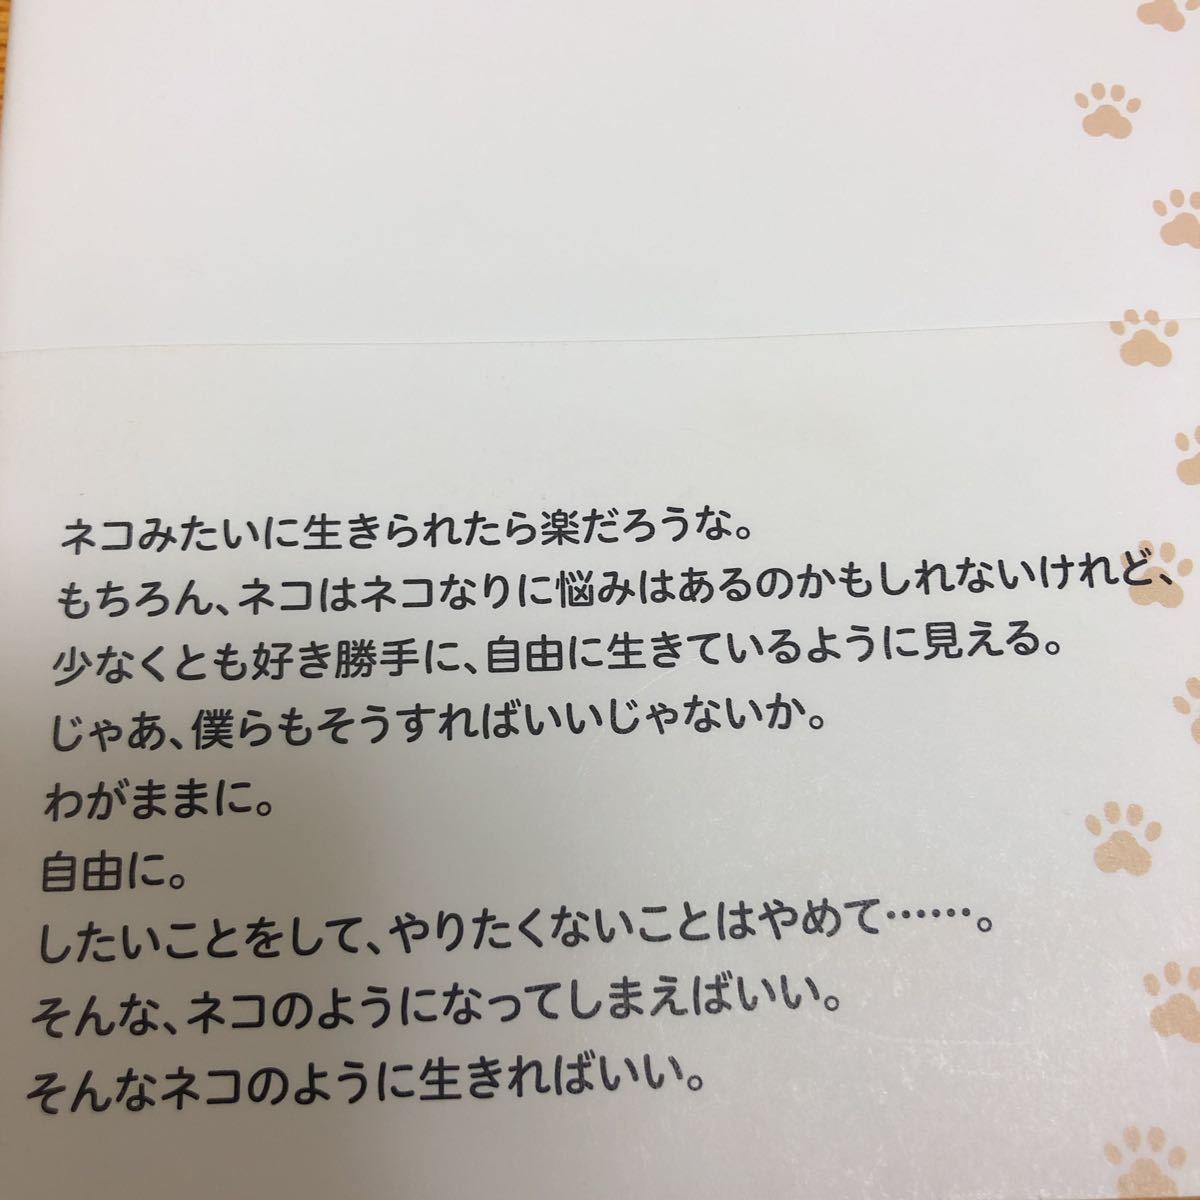 ネコみたいに生きられたら楽だろうな。
もちろん、ネコはネコなりに悩みはあるのかもしれないけれど、
少なくとも好き勝手に、自由に生きているように見える。
じゃあ、僕らもそうすればいいじゃないか。
わがままに。
自由に。
したいことをして、やりたくないことはやめて……。
そんな、ネコのようになってしまえばいい。
そんなネコのように生きればいい。